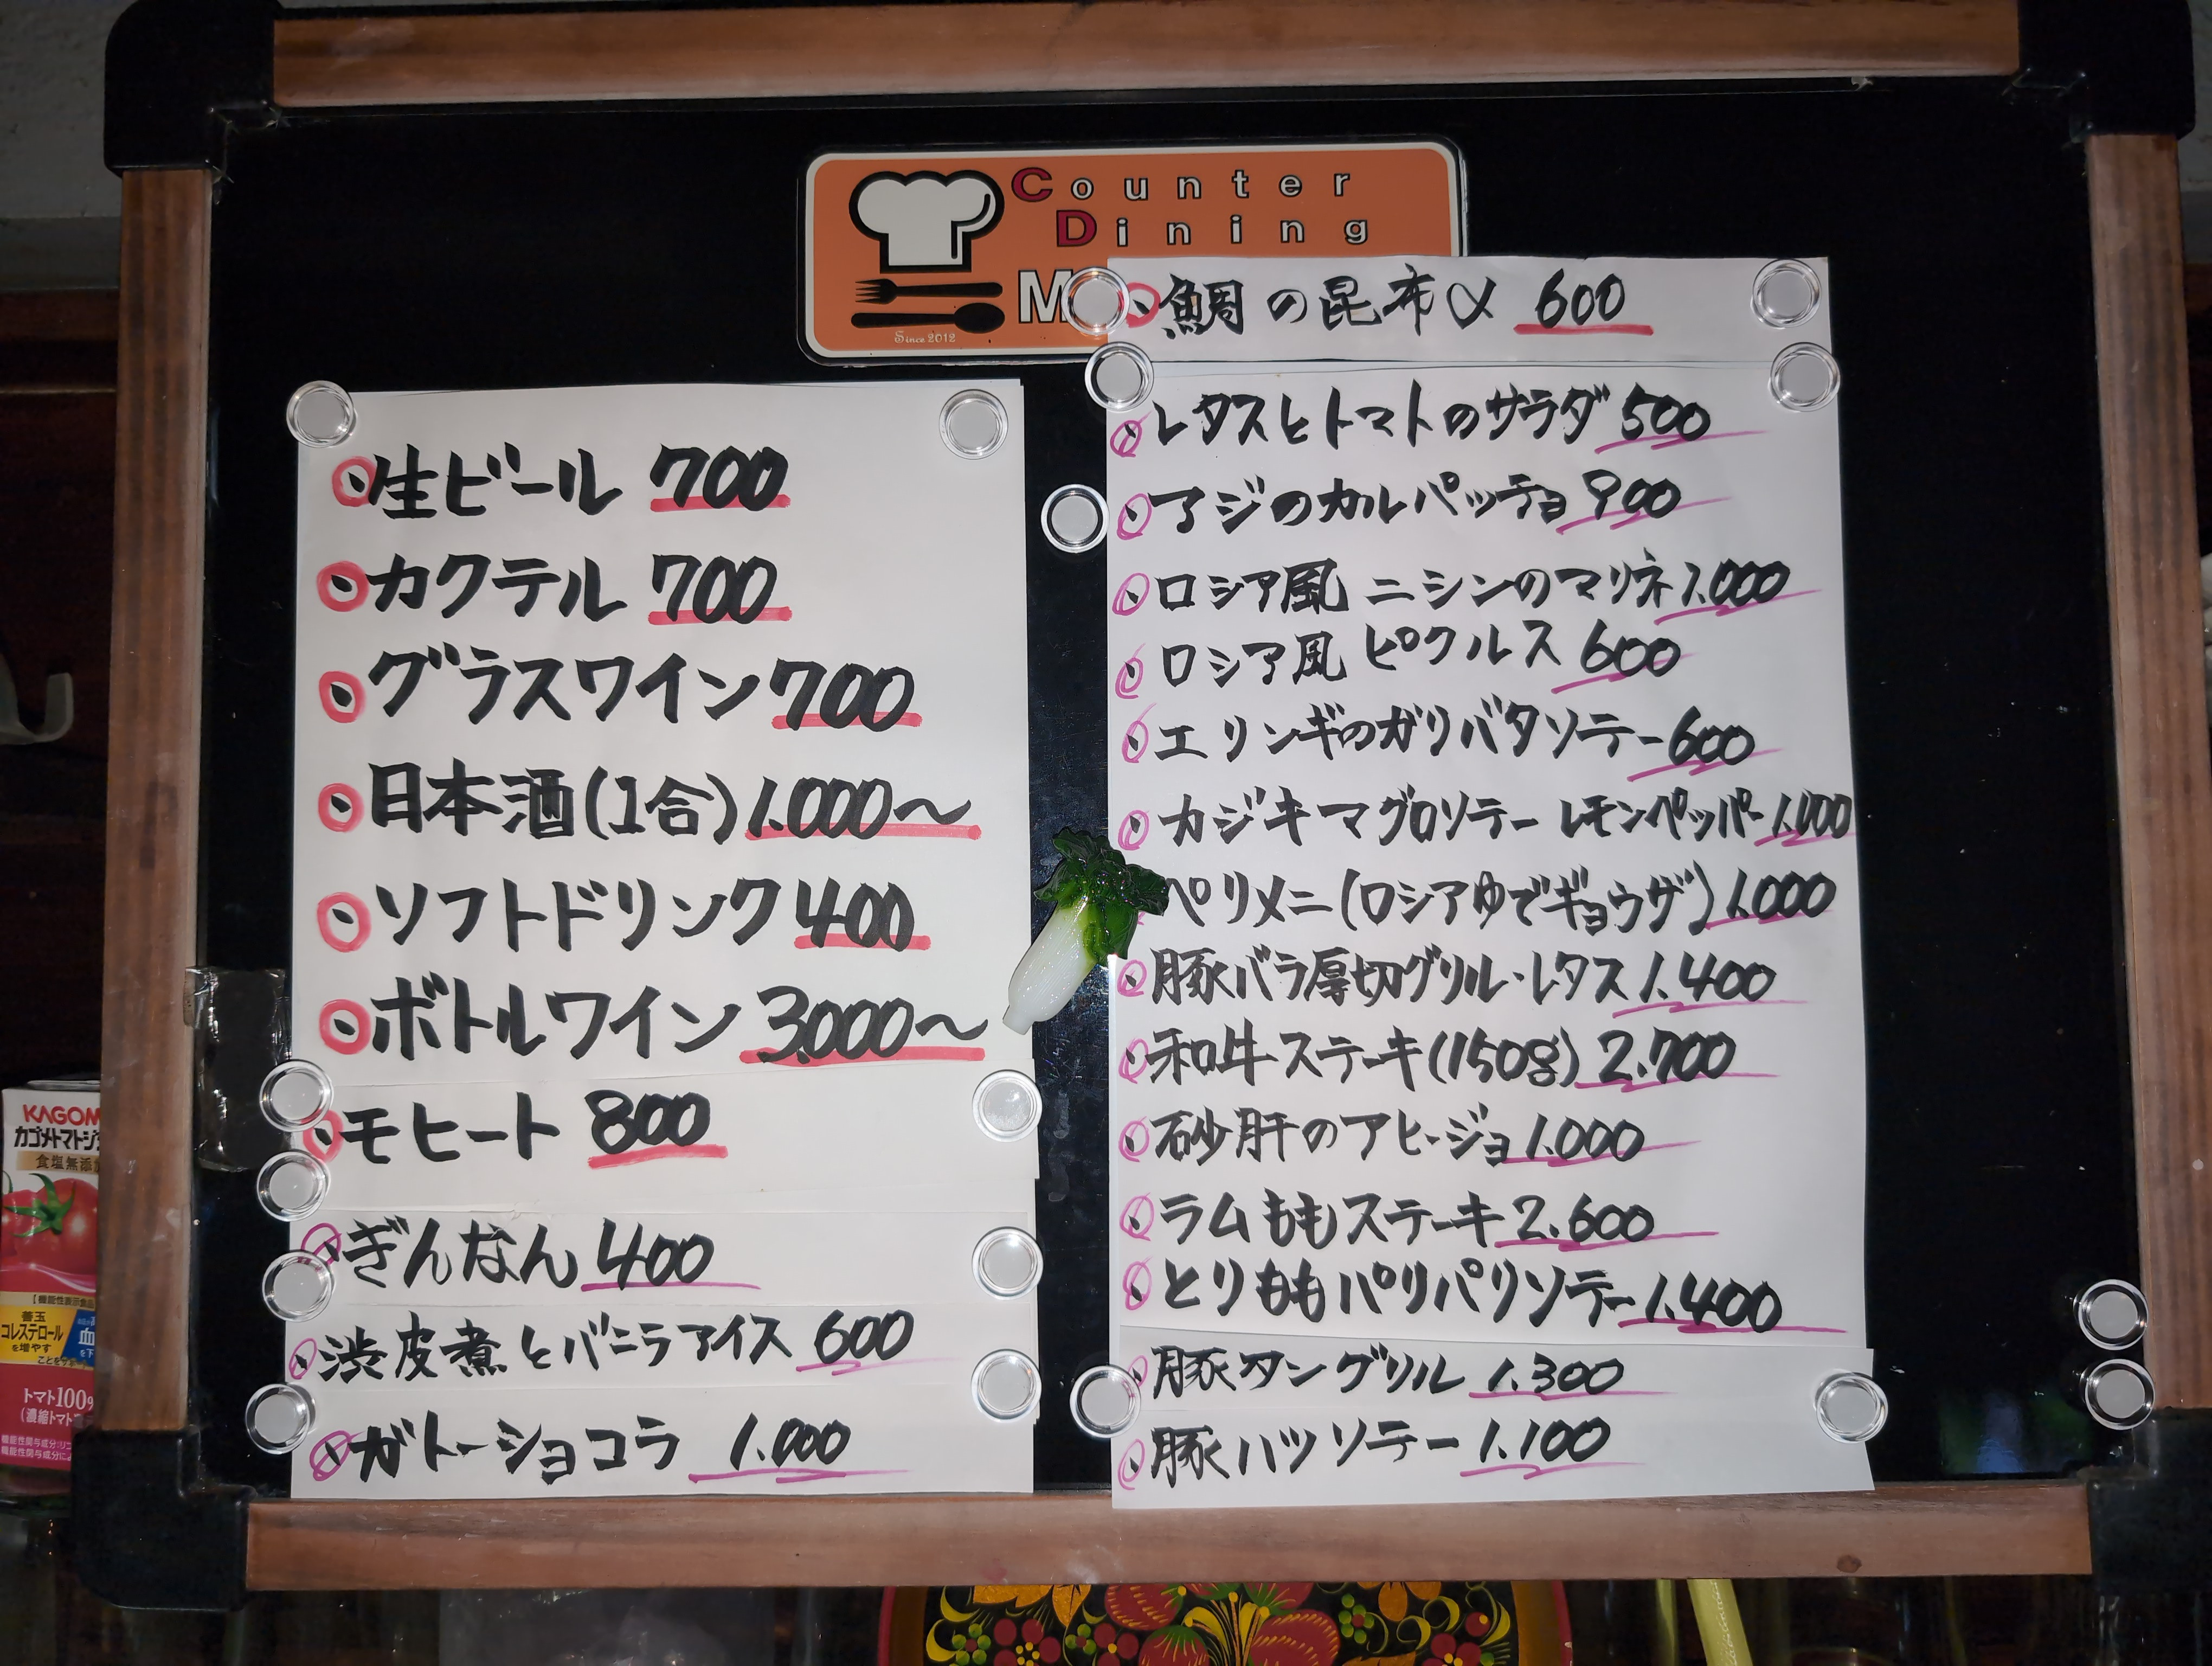 Counter
Dining
M
Since 2012
鯛の昆布〆 600
生ビール 700
カクテル 700
グラスワイン 700
日本酒(1合) 1.000〜
ソフトドリンク 400
ボトルワイン 3.000〜
モヒート 800
ぎんなん 400
渋皮煮とバニラアイス 600
ガトーショコラ 1.000
レタスとトマトのサラダ 500
アジのカルパッチョ 900
ロシア風 ニシンのマリネ 1.000
ロシア風 ピクルス 600
エリンギのガリバタソテー 600
カジキマグロソテー レモンペッパー 1.000
ペリメニ(ロシアゆでギョウザ) 1.000
豚バラ厚切グリル・レタス 1.400
和牛ステーキ(150g) 2.700
砂肝のアヒージョ 1.000
ラムももステーキ 2.600
とりももパリパリソテー 1.400
豚タングリル 1.300
豚ハツソテー 1.100
KAGOM
カゴメトマトジ
食塩無添
善玉
コレステロール
を増やす
血
トマト100%
(濃縮トマト